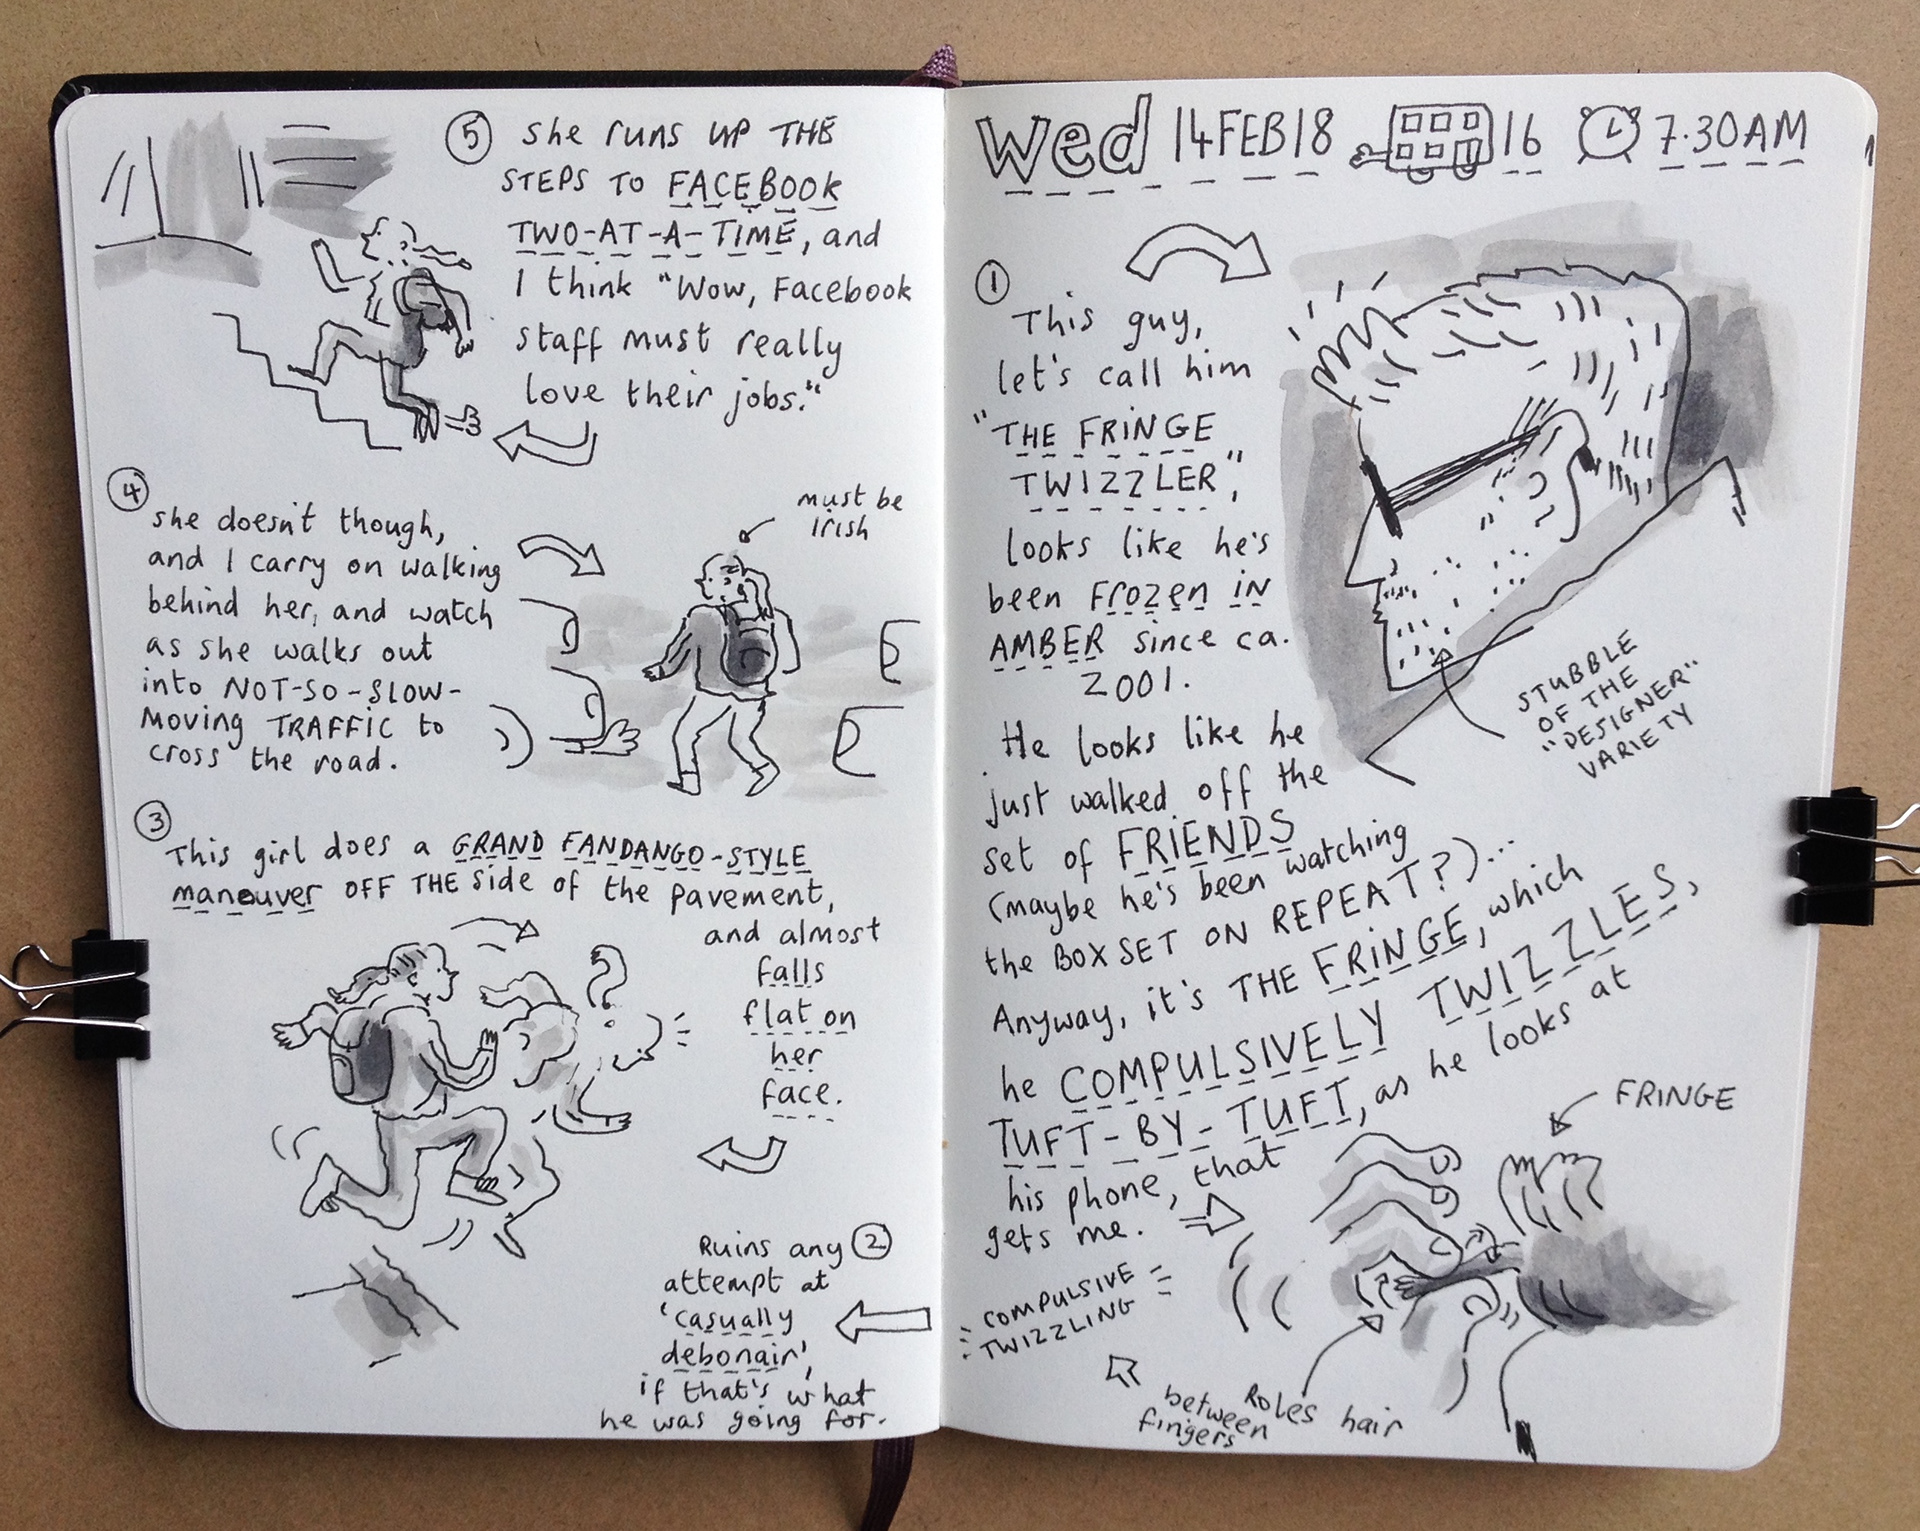 Wed 14 FEB 18 16 7.30AM
1
This guy,
let's call him
"THE FRINGE
TWIZZLER",
looks like he's
been Frozen in
AMBER since ca.
2001.
He looks like he
just walked off the
set of FRIENDS
(maybe he's been watching
the BOX SET ON REPEAT?)...
Anyway, it's THE FRINGE, which
he COMPULSIVELY TWIZZLES,
TUFT-BY-TUFT, as he looks at
his phone, that
gets me.
STUBBLE
OF THE
"DESIGNER"
VARIETY
FRINGE
COMPULSIVE
TWIZZLING
Roles hair
between
fingers
2
Ruins any
attempt at
'casually
debonair',
if that's what
he was going for.
3
This girl does a GRAND FANDANGO-STYLE
manouver OFF THE side of the pavement,
and almost
falls
flat on
her
face.
?
4
she doesn't though,
and I carry on walking
behind her, and watch
as she walks out
into NOT-SO-SLOW-
moving TRAFFIC to
cross the road.
must be
irish
5
she runs UP THE
STEPS TO FACEBOOK
TWO-AT-A-TIME, and
I think "Wow, Facebook
staff must really
love their jobs."